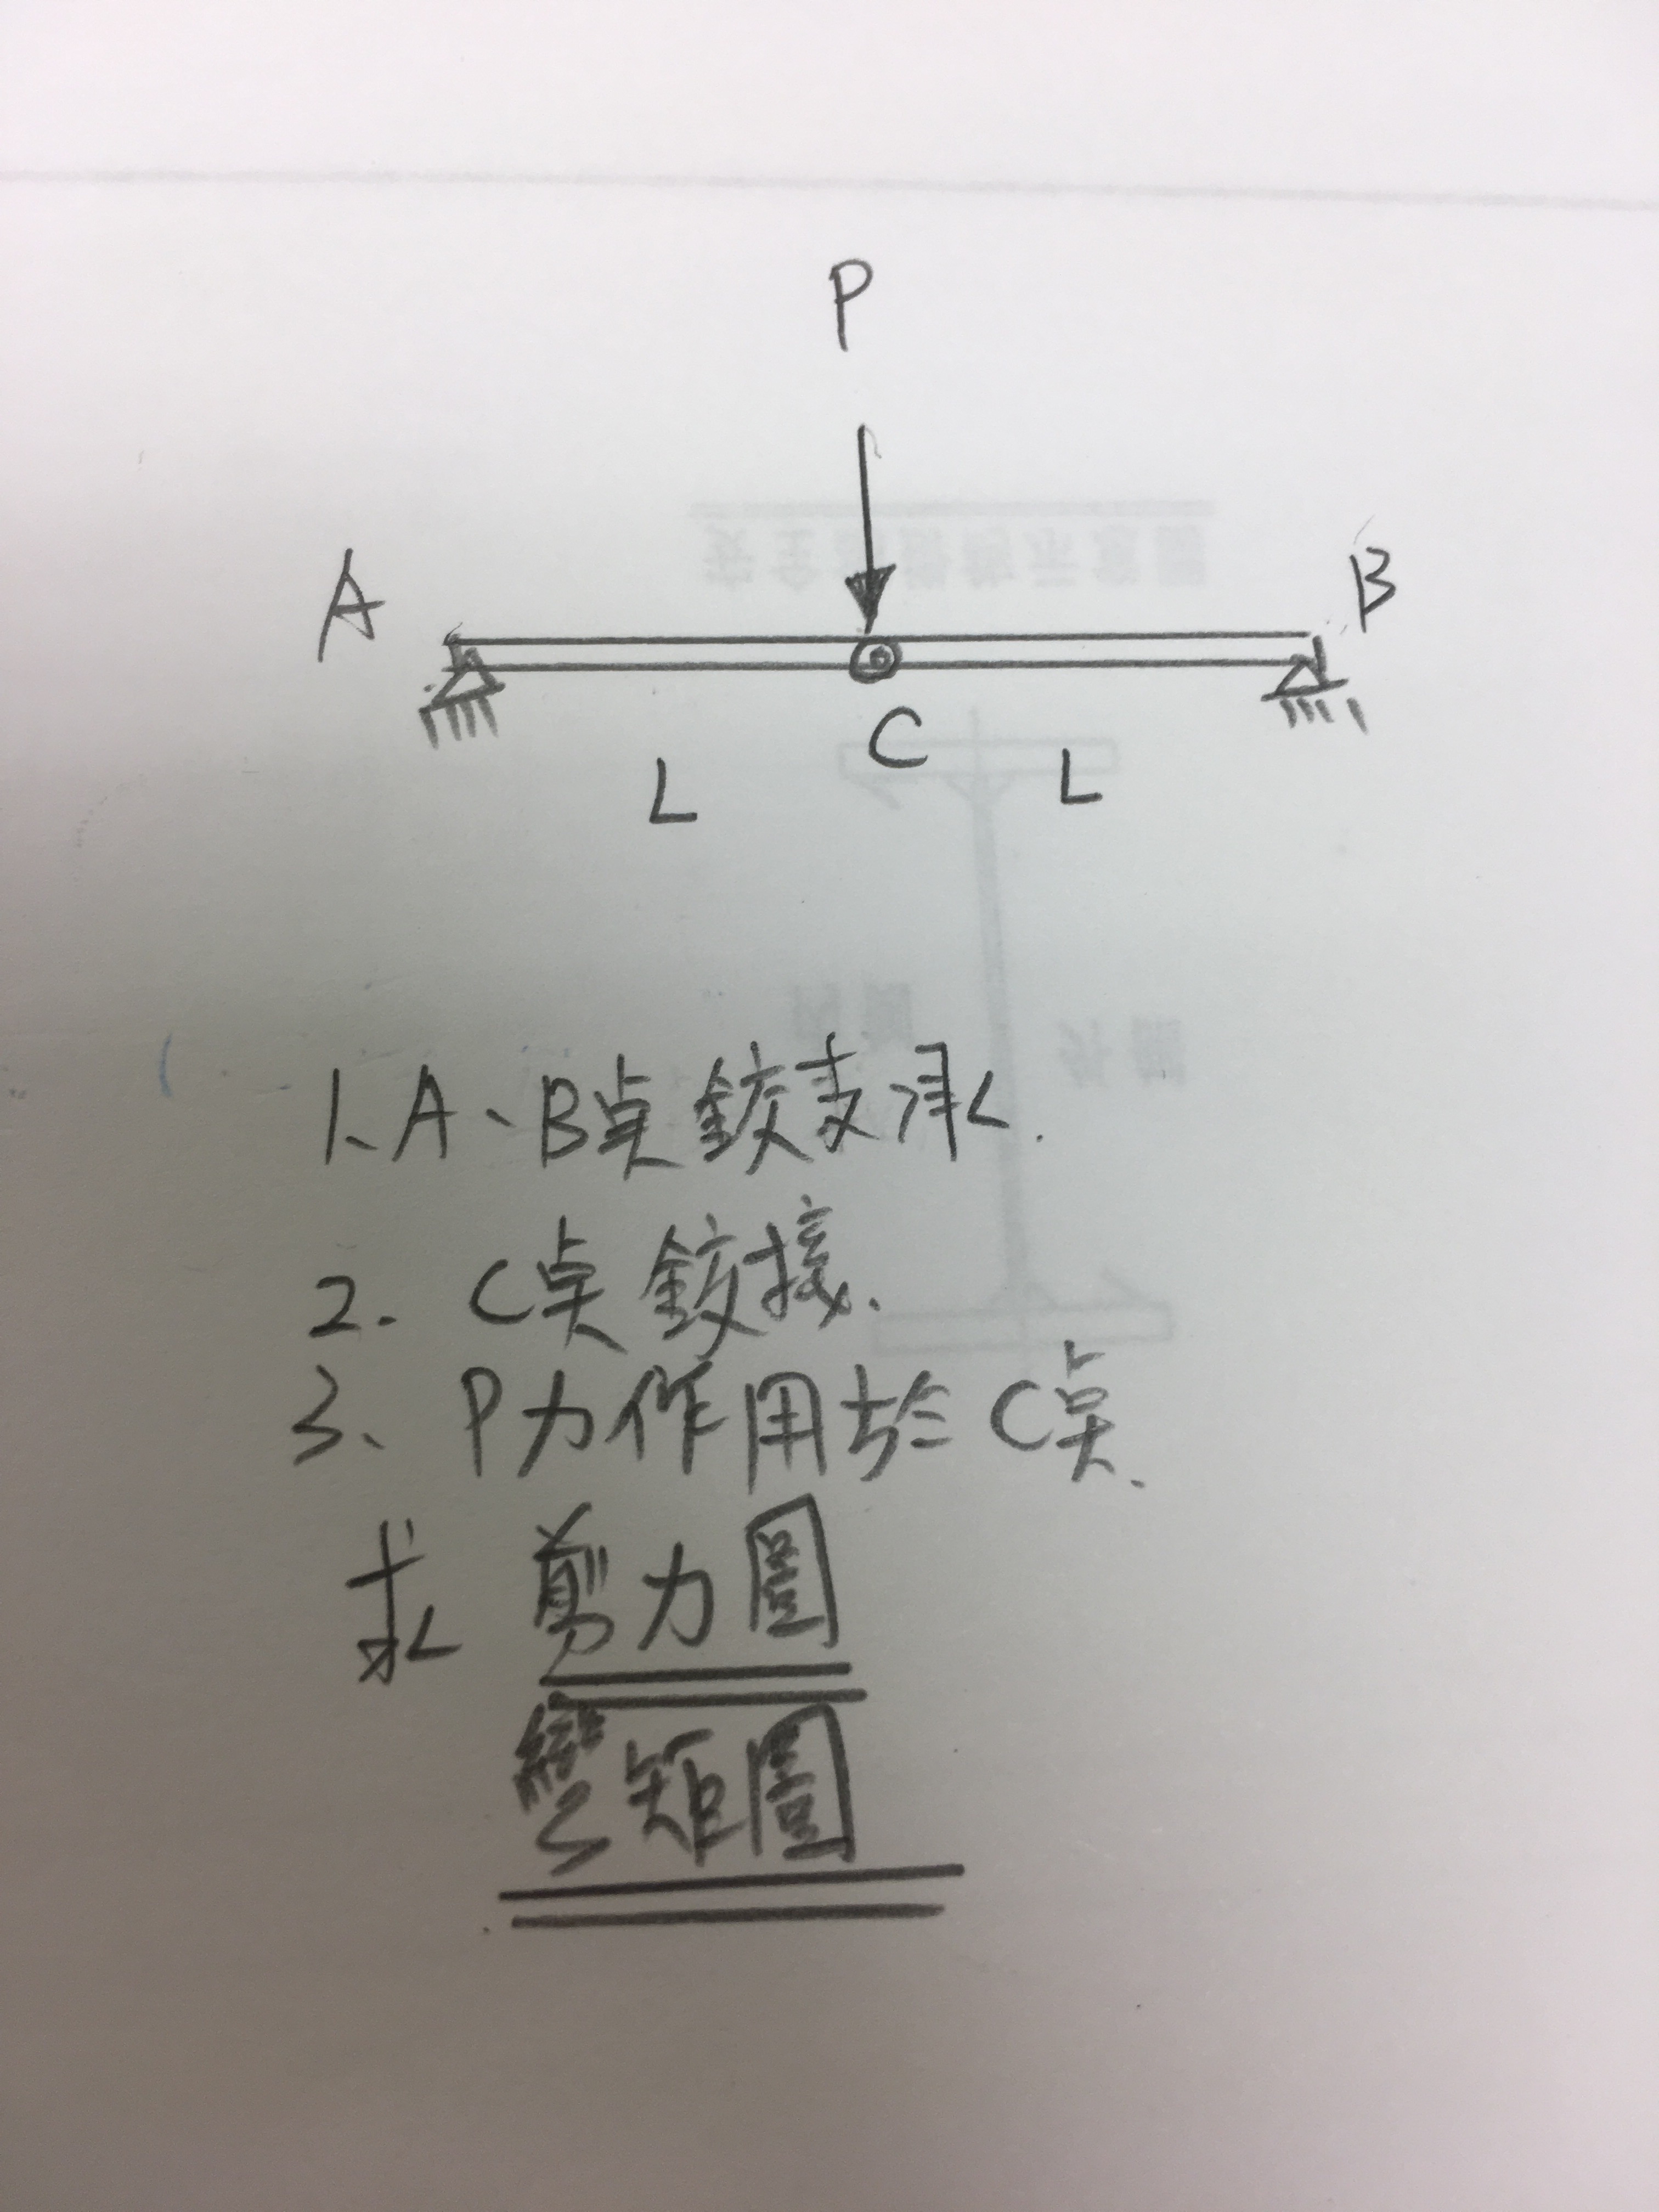 P
A
B
C
L
L
1. A、B点鉸支承.
2. C点鉸接.
3、P力作用於C点.
求 剪力圖
彎矩圖